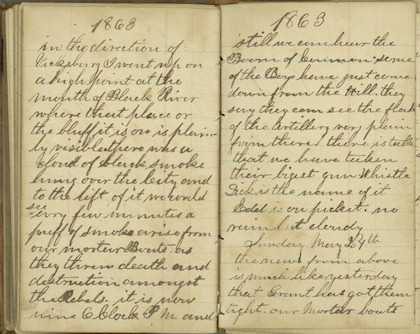 1863
in the direction of
Vicksburg I went up on
a high point at the
mouth of Black River
where that place or
the bluff it is on is plain-
ly visible there was a
cloud of black smoke
hung over the City and
to the left of it we could
see
evry few minuts a
puff of smoke arise from
our morter Boats. as
they threw death and
destruction amongst
the Rebels. it is now
nine O Clock P M and
1863
still we can hear the
Boom of Cannon some
of the Boys have just come
down from the Hill. they
say they can see the flash
of the Artillery very plain
from there. there is talk
that we have taken
their bigest gun Whistle
Dick is the name of it
is on picket. no
rain but cloudy
Sunday May 24th
the news from above
is much like yesterday
that Grant has got them
tight. our Morter boats